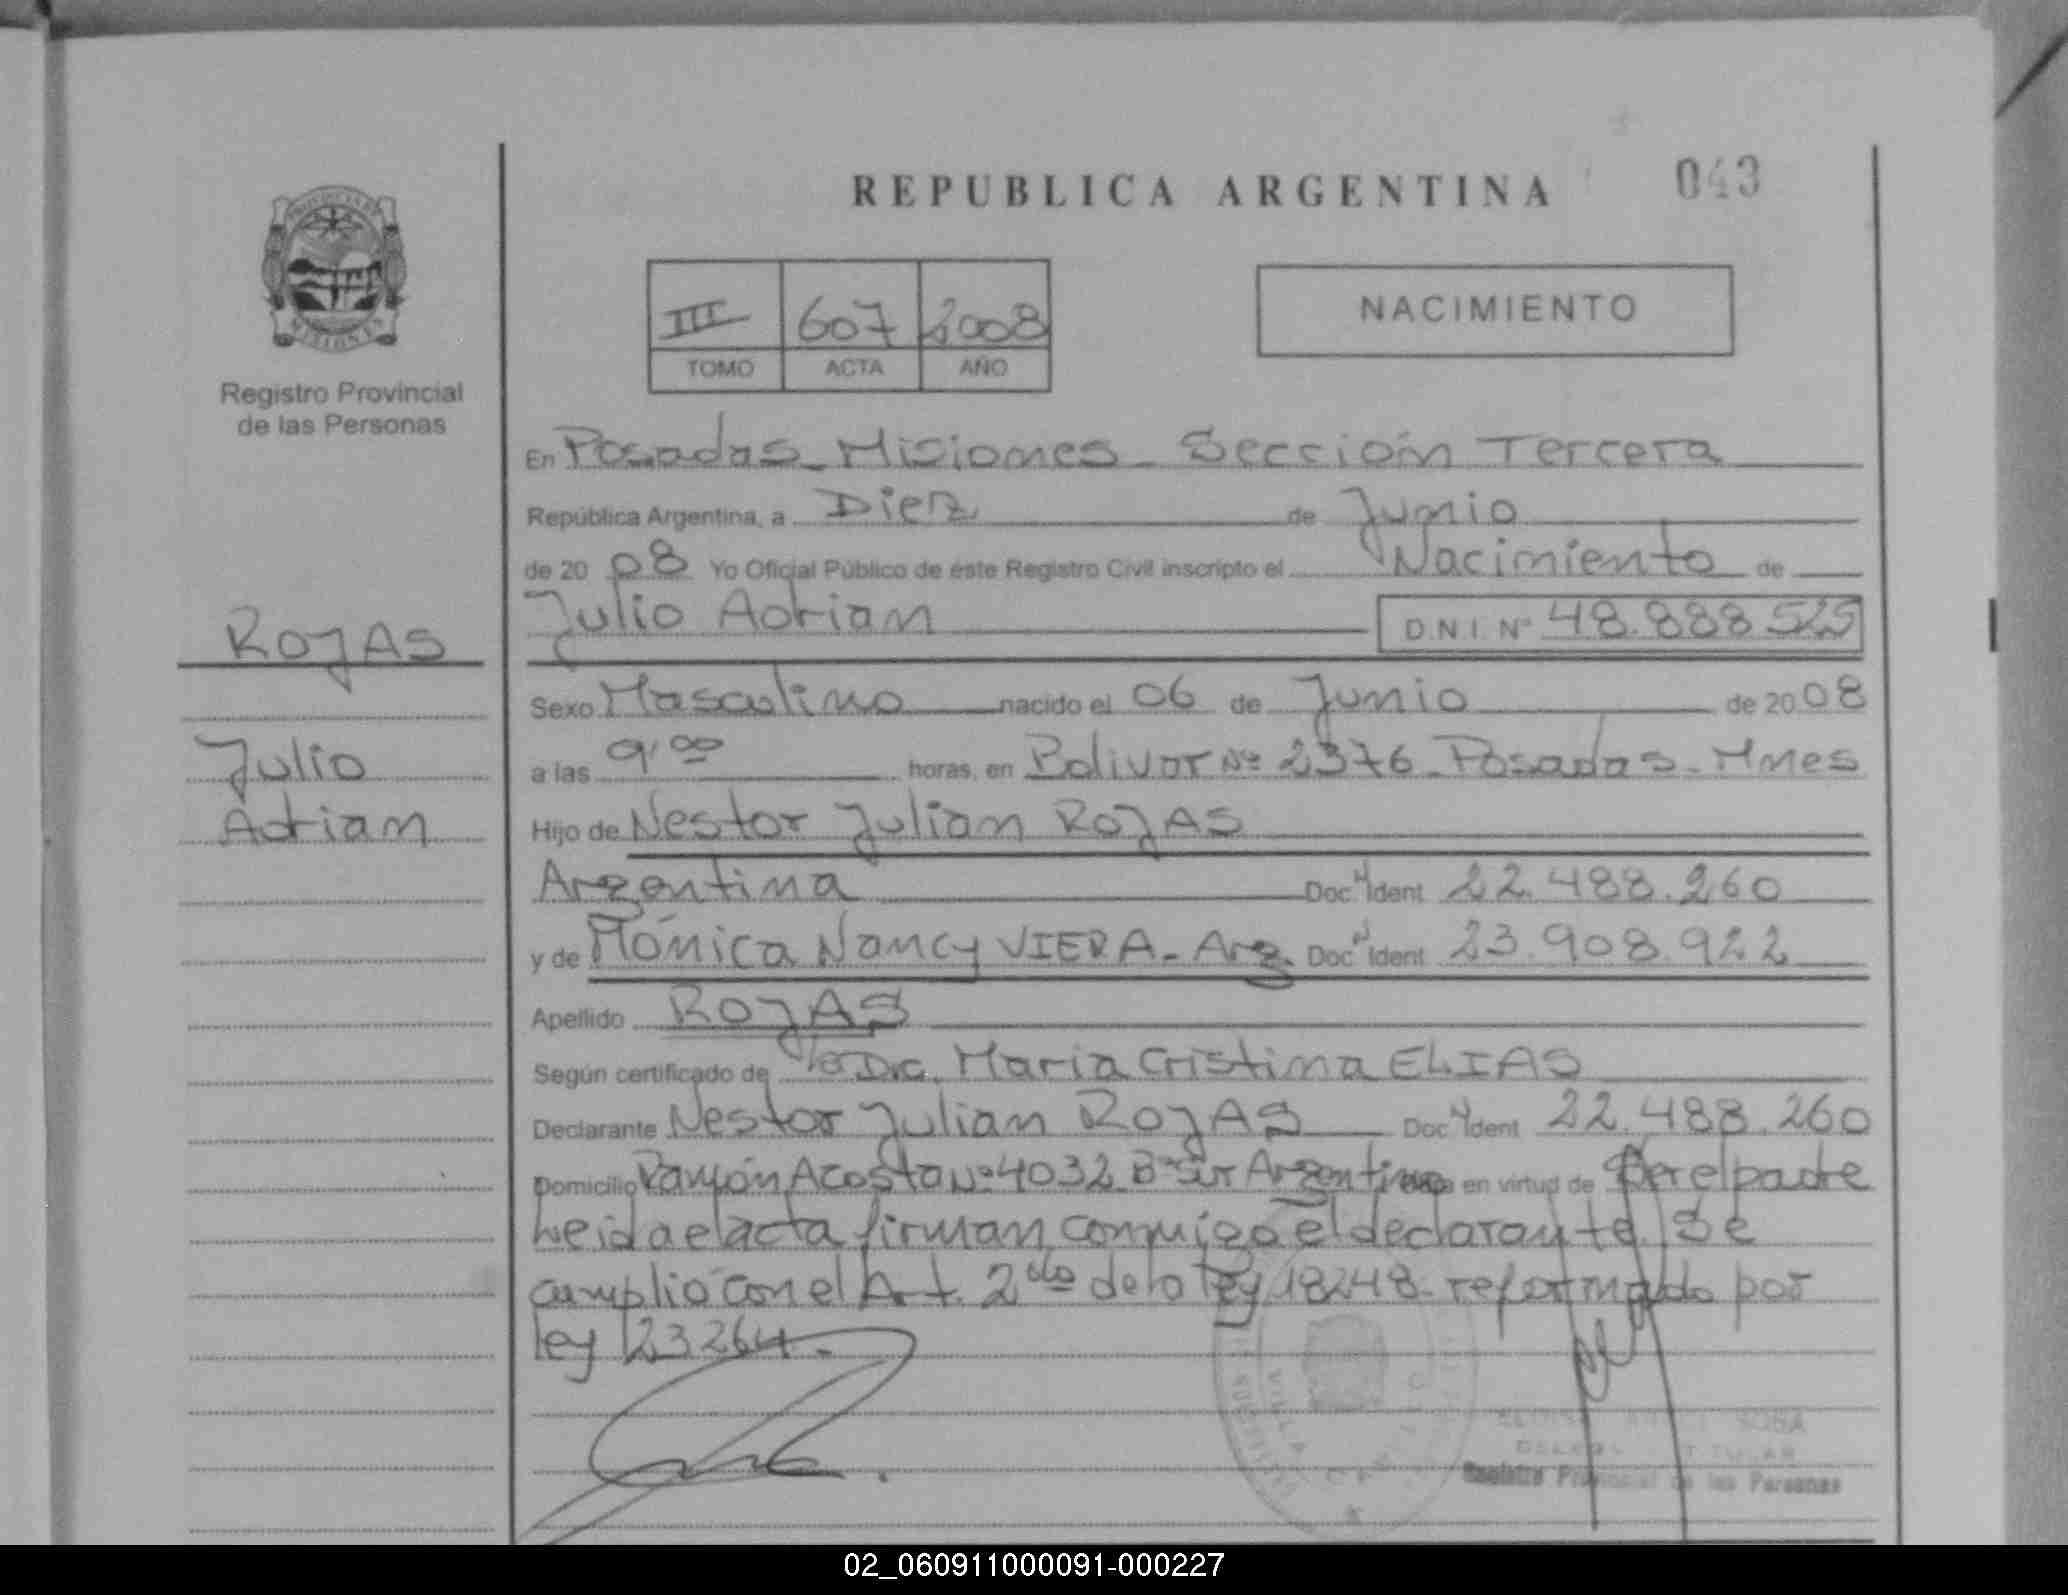 REPUBLICA ARGENTINA 043
PROVINCIA DE
MISIONES
Registro Provincial
de las Personas
III 607 2008
TOMO ACTA AÑO
NACIMIENTO
En Posadas - Misiones - Sección Tercera
República Argentina, a Diez de Junio
de 20 08 Yo Oficial Público de éste Registro Civil inscripto el Nacimiento de
Julio Adrian D.N.I. Nº 48.888.525
ROJAS
Julio
Adrian
Sexo Masculino nacido el 06 de Junio de 20 08
a las 9,00 horas, en Bolivar Nº 2376 - Posadas - Mnes
Hijo de Nestor Julian ROJAS
Argentina Doc. Ident 22.488.260
y de Mónica Nancy VIERA - Arg. Doc. Ident 23.908.922
Apellido ROJAS
Según certificado de la Dra. Maria Cristina ELIAS
Declarante Nestor Julian ROJAS Doc. Ident 22.488.260
Domicilio Ramón Acosta Nº 4032 Bº Sur Argentino en virtud de Ser el padre
Leida el acta firman conmigo el declarante. Se
cumplió con el Art. 2do de la ley 18248 - reformado por
ley 23264.
SOSA
TITULAR
Registro Provincial de las Personas
02_060911000091-000227